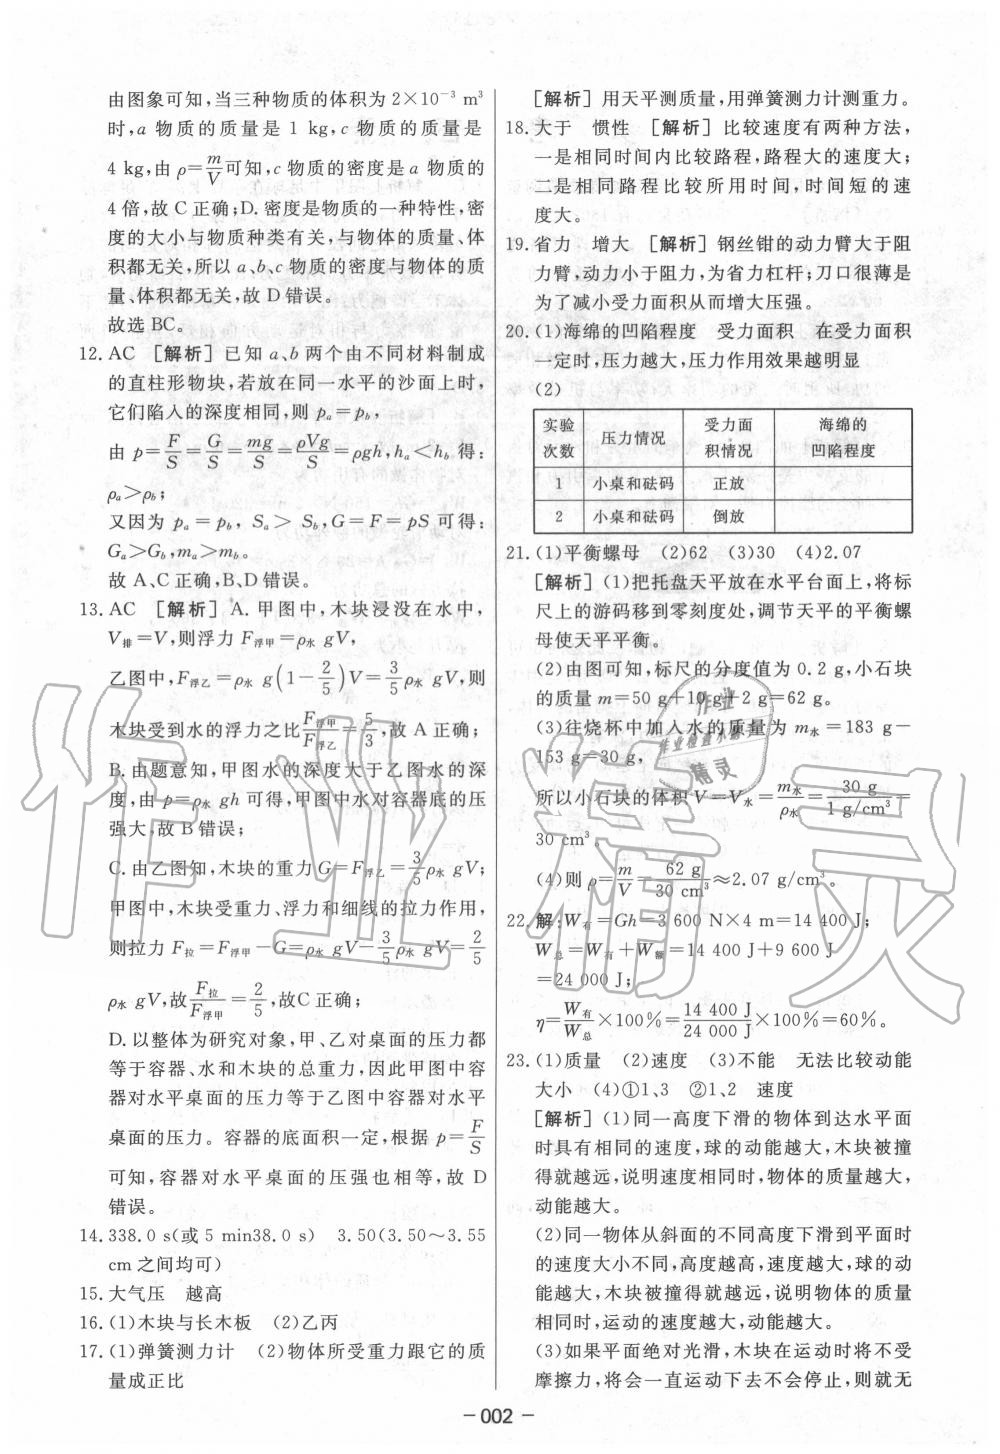 由图象可知,当三种物质的体积为 2×10⁻³ m³
时,a 物质的质量是 1 kg,c 物质的质量是
4 kg,由 ρ=m/V可知,c 物质的密度是 a 物质的
4 倍,故 C 正确;D. 密度是物质的一种特性,密
度的大小与物质种类有关,与物体的质量、体
积都无关,所以 a、b、c 物质的密度与物体的质
量、体积都无关,故 D 错误。
故选 BC。
12. AC [解析] 已知 a、b 两个由不同材料制成
的直柱形物块,若放在同一水平的沙面上时,
它们陷入的深度相同,则 pₐ=p_b,
由 p=F/S=G/S=mg/S=ρVg/S=ρgh,hₐ<h_b 得:
ρₐ>ρ_b;
又因为 pₐ=p_b, Sₐ> S_b,G=F=pS 可得:
Gₐ>G_b,mₐ>m_b。
故 A、C 正确,B、D 错误。
13. AC [解析] A. 甲图中,木块浸没在水中,
V排=V,则浮力 F浮甲=ρ水 gV,
乙图中,F浮乙=ρ水 g(1-2/5)V=3/5ρ水 gV,则
木块受到水的浮力之比F浮甲/F浮乙=5/3,故 A 正确;
B. 由题意知,甲图水的深度大于乙图水的深
度,由 p=ρ水 gh 可得,甲图中水对容器底的压
强大,故 B 错误;
C. 由乙图知,木块的重力 G=F浮乙=3/5ρ水 gV;
甲图中,木块受重力、浮力和细线的拉力作用,
则拉力 F拉=F浮甲-G=ρ水 gV-3/5ρ水 gV=2/5
ρ水 gV,故F拉/F浮甲=2/5,故C 正确;
D. 以整体为研究对象,甲、乙对桌面的压力都
等于容器、水和木块的总重力,因此甲图中容
器对水平桌面的压力等于乙图中容器对水平
桌面的压力。容器的底面积一定,根据 p=F/S
可知,容器对水平桌面的压强也相等,故 D
错误。
14. 338.0 s(或 5 min38.0 s) 3.50(3.50～3.55
cm 之间均可)
15. 大气压 越高
16. (1)木块与长木板 (2)乙丙
17. (1)弹簧测力计 (2)物体所受重力跟它的质
量成正比
[解析] 用天平测质量,用弹簧测力计测重力。
18. 大于 惯性 [解析] 比较速度有两种方法,
一是相同时间内比较路程,路程大的速度大;
二是相同路程比较所用时间,时间短的速
度大。
19. 省力 增大 [解析] 钢丝钳的动力臂大于阻
力臂,动力小于阻力,为省力杠杆;刀口很薄是
为了减小受力面积从而增大压强。
20. (1)海绵的凹陷程度 受力面积 在受力面积
一定时,压力越大,压力作用效果越明显
(2)
实验次数 压力情况 受力面积情况 海绵的凹陷程度
1 小桌和砝码 正放
2 小桌和砝码 倒放
21. (1)平衡螺母 (2)62 (3)30 (4)2.07
[解析] (1)把托盘天平放在水平台面上,将标
尺上的游码移到零刻度处,调节天平的平衡螺
母使天平平衡。
(2)由图可知,标尺的分度值为 0.2 g,小石块
的质量 m=50 g+10 g+2 g=62 g。
(3)往烧杯中加入水的质量为 m水=183 g-
153 g=30 g,
所以小石块的体积 V=V水=m水/ρ水=30 g/1 g/cm³=
30 cm³。
(4)则 ρ=m/V=62 g/30 cm³≈2.07 g/cm³。
22. 解:W有=Gh=3 600 N×4 m=14 400 J;
W总=W有+W额=14 400 J+9 600 J
=24 000 J;
η=W有/W总×100%=14 400 J/24 000 J×100%=60%。
23. (1)质量 (2)速度 (3)不能 无法比较动能
大小 (4)①1、3 ②1、2 速度
[解析] (1)同一高度下滑的物体到达水平面
时具有相同的速度,球的动能越大,木块被撞
得就越远,说明速度相同时,物体的质量越大,
动能越大。
(2)同一物体从斜面的不同高度下滑到平面时
的速度大小不同,高度越高,速度越大,球的动
能越大,木块被撞得就越远,说明物体的质量
相同时,运动的速度越大,动能越大。
(3)如果平面绝对光滑,木块在运动时将不受
摩擦力,将会一直运动下去不会停止,则就无
- 002 -
作业精灵
作业
作业检查小帮手
精灵